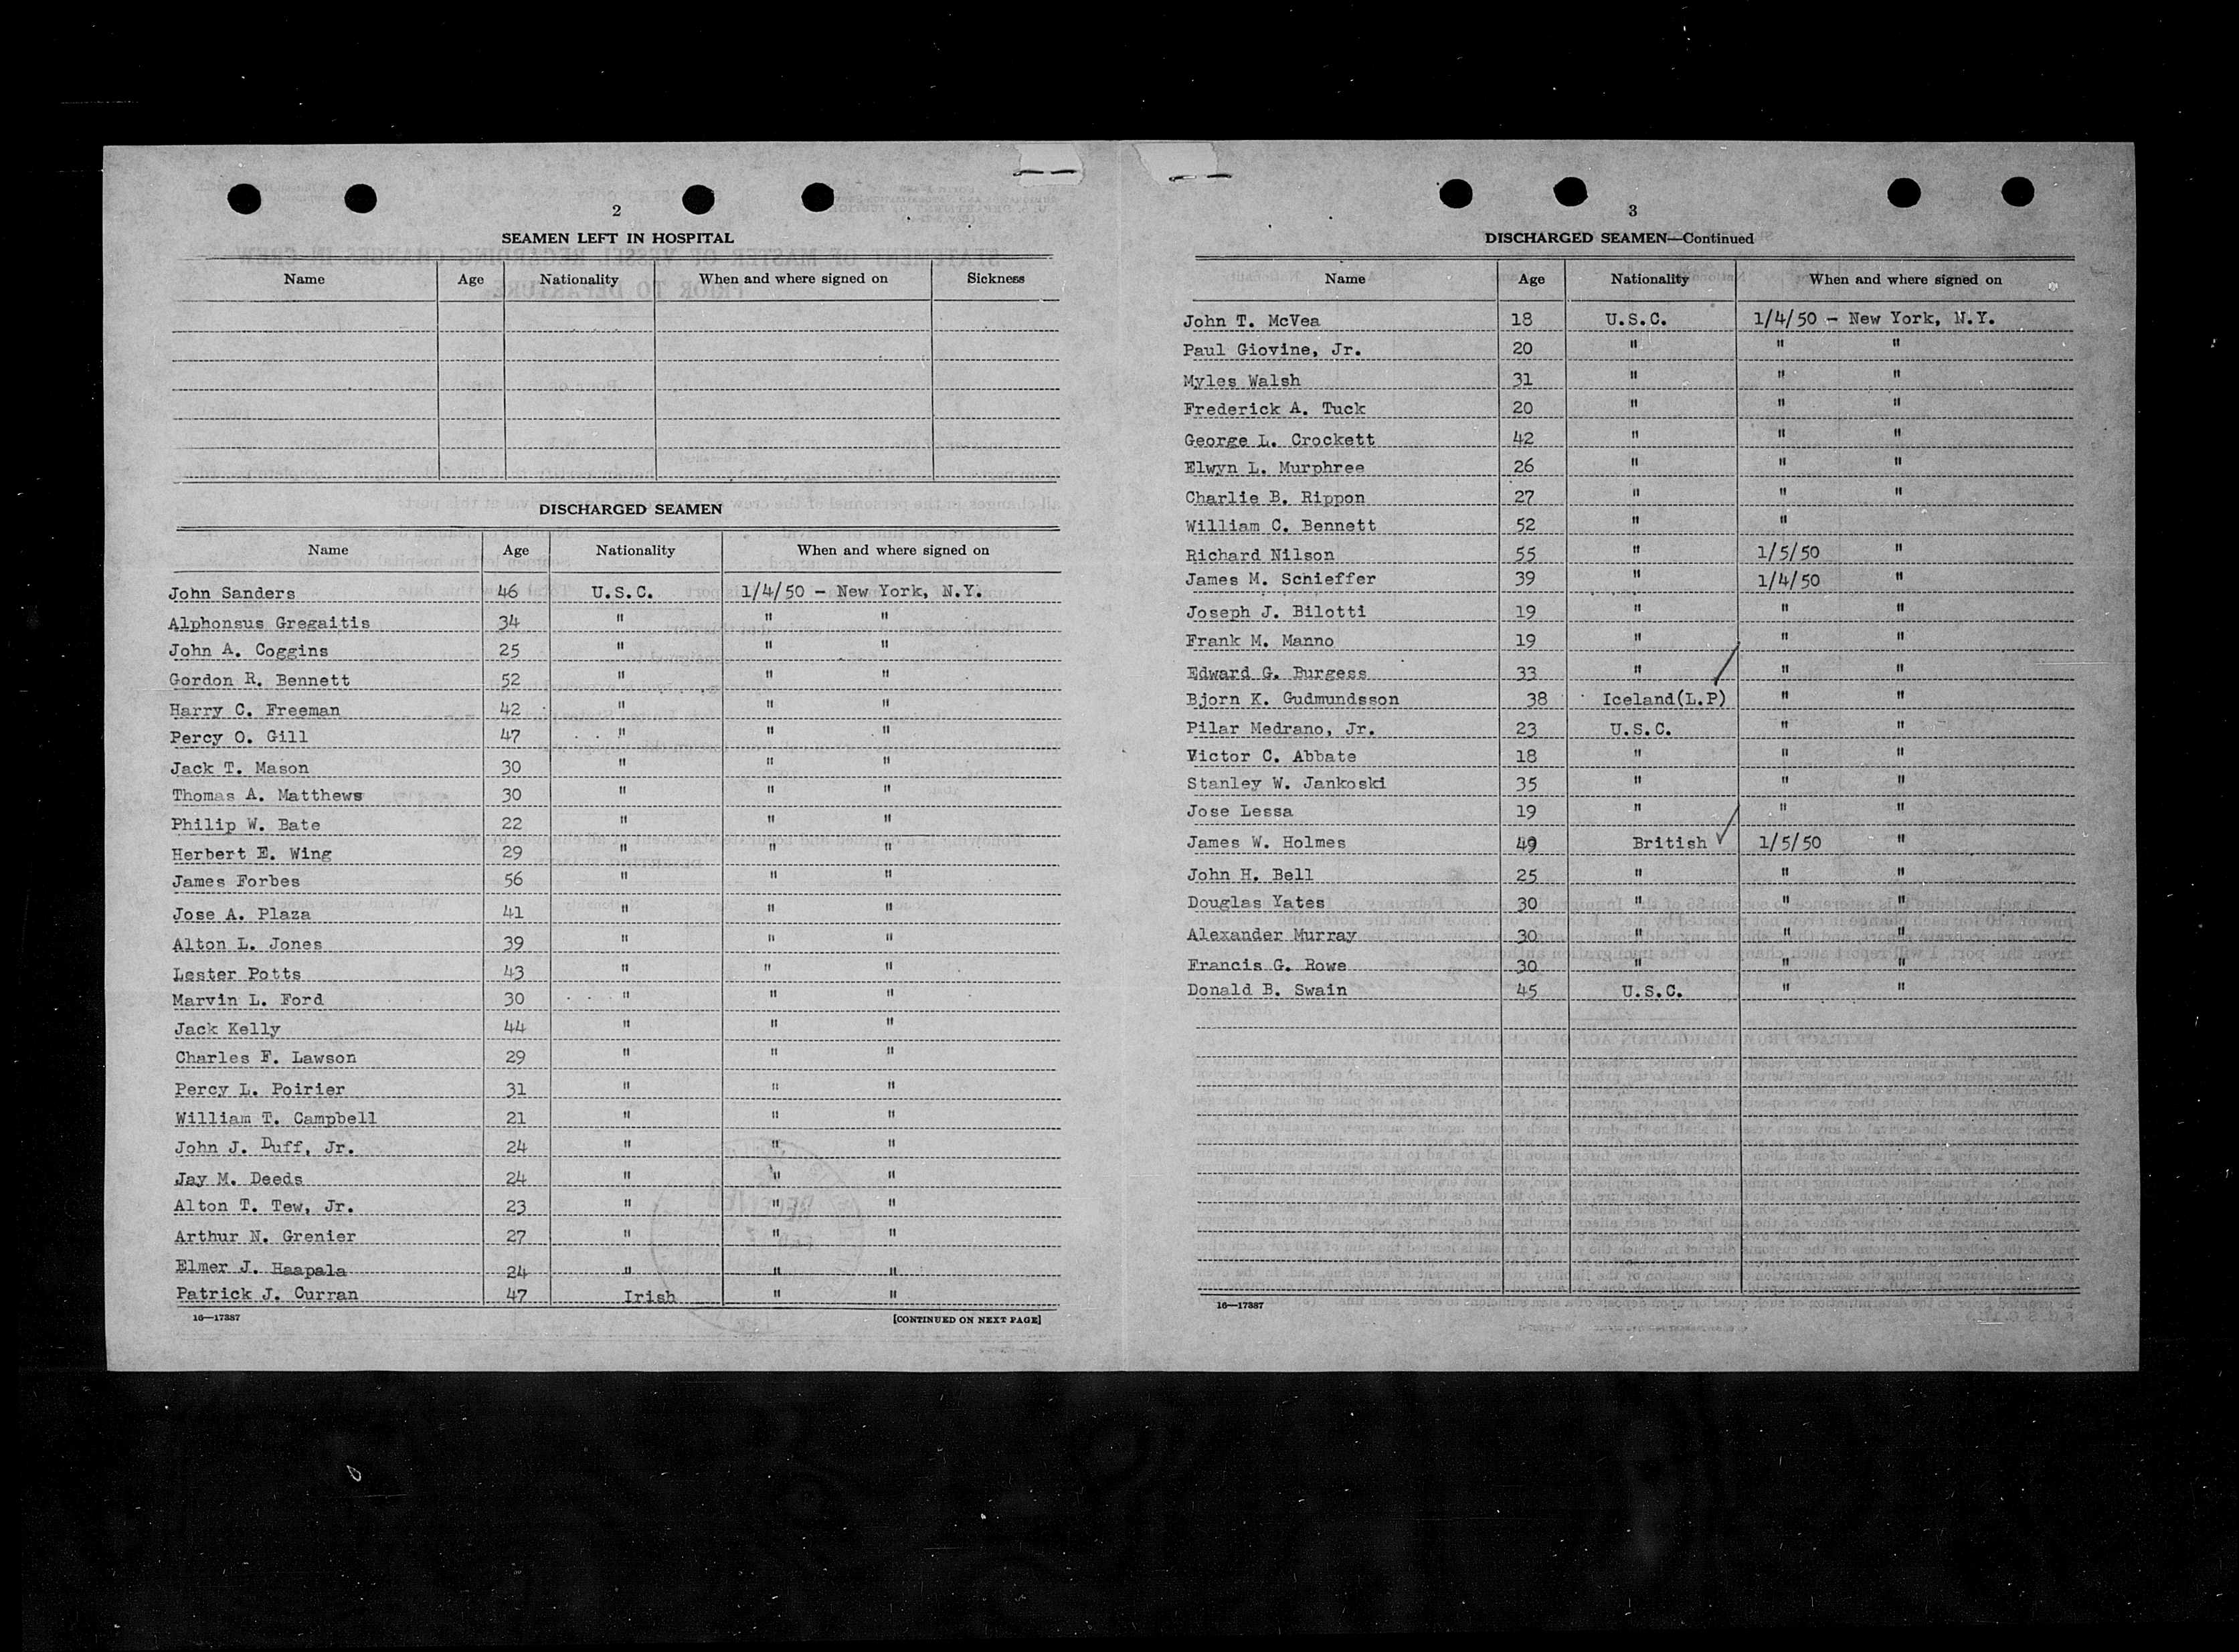 2
SEAMEN LEFT IN HOSPITAL
Name Age Nationality When and where signed on Sickness
DISCHARGED SEAMEN
Name Age Nationality When and where signed on
John Sanders 46 U.S.C. 1/4/50 - New York, N.Y.
Alphonsus Gregaitis 34 " " "
John A. Coggins 25 " " "
Gordon R. Bennett 52 " " "
Harry C. Freeman 42 " " "
Percy O. Gill 47 " " "
Jack T. Mason 30 " " "
Thomas A. Matthews 30 " " "
Philip W. Bate 22 " " "
Herbert E. Wing 29 " " "
James Forbes 56 " " "
Jose A. Plaza 41 " " "
Alton L. Jones 39 " " "
Lester Potts 43 " " "
Marvin L. Ford 30 " " "
Jack Kelly 44 " " "
Charles F. Lawson 29 " " "
Percy L. Poirier 31 " " "
William T. Campbell 21 " " "
John J. Duff, Jr. 24 " " "
Jay M. Deeds 24 " " "
Alton T. Tew, Jr. 23 " " "
Arthur N. Grenier 27 " " "
Elmer J. Haapala 24 " " "
Patrick J. Curran 47 Irish " "
16—17387 [CONTINUED ON NEXT PAGE]
3
DISCHARGED SEAMEN—Continued
Name Age Nationality When and where signed on
John T. McVea 18 U.S.C. 1/4/50 - New York, N.Y.
Paul Giovine, Jr. 20 " " "
Myles Walsh 31 " " "
Frederick A. Tuck 20 " " "
George L. Crockett 42 " " "
Elwyn L. Murphree 26 " " "
Charlie B. Rippon 27 " " "
William C. Bennett 52 " "
Richard Nilson 55 " 1/5/50 "
James M. Schieffer 39 " 1/4/50 "
Joseph J. Bilotti 19 " " "
Frank M. Manno 19 " " "
Edward G. Burgess 33 " " "
Bjorn K. Gudmundsson 38 Iceland(L.P) " "
Pilar Medrano, Jr. 23 U.S.C. " "
Victor C. Abbate 18 " " "
Stanley W. Jankoski 35 " " "
Jose Lessa 19 " " "
James W. Holmes 49 British ✓ 1/5/50 "
John H. Bell 25 " " "
Douglas Yates 30 " " "
Alexander Murray 30 " " "
Francis G. Rowe 30 " " "
Donald B. Swain 45 U.S.C. " "
16—17387